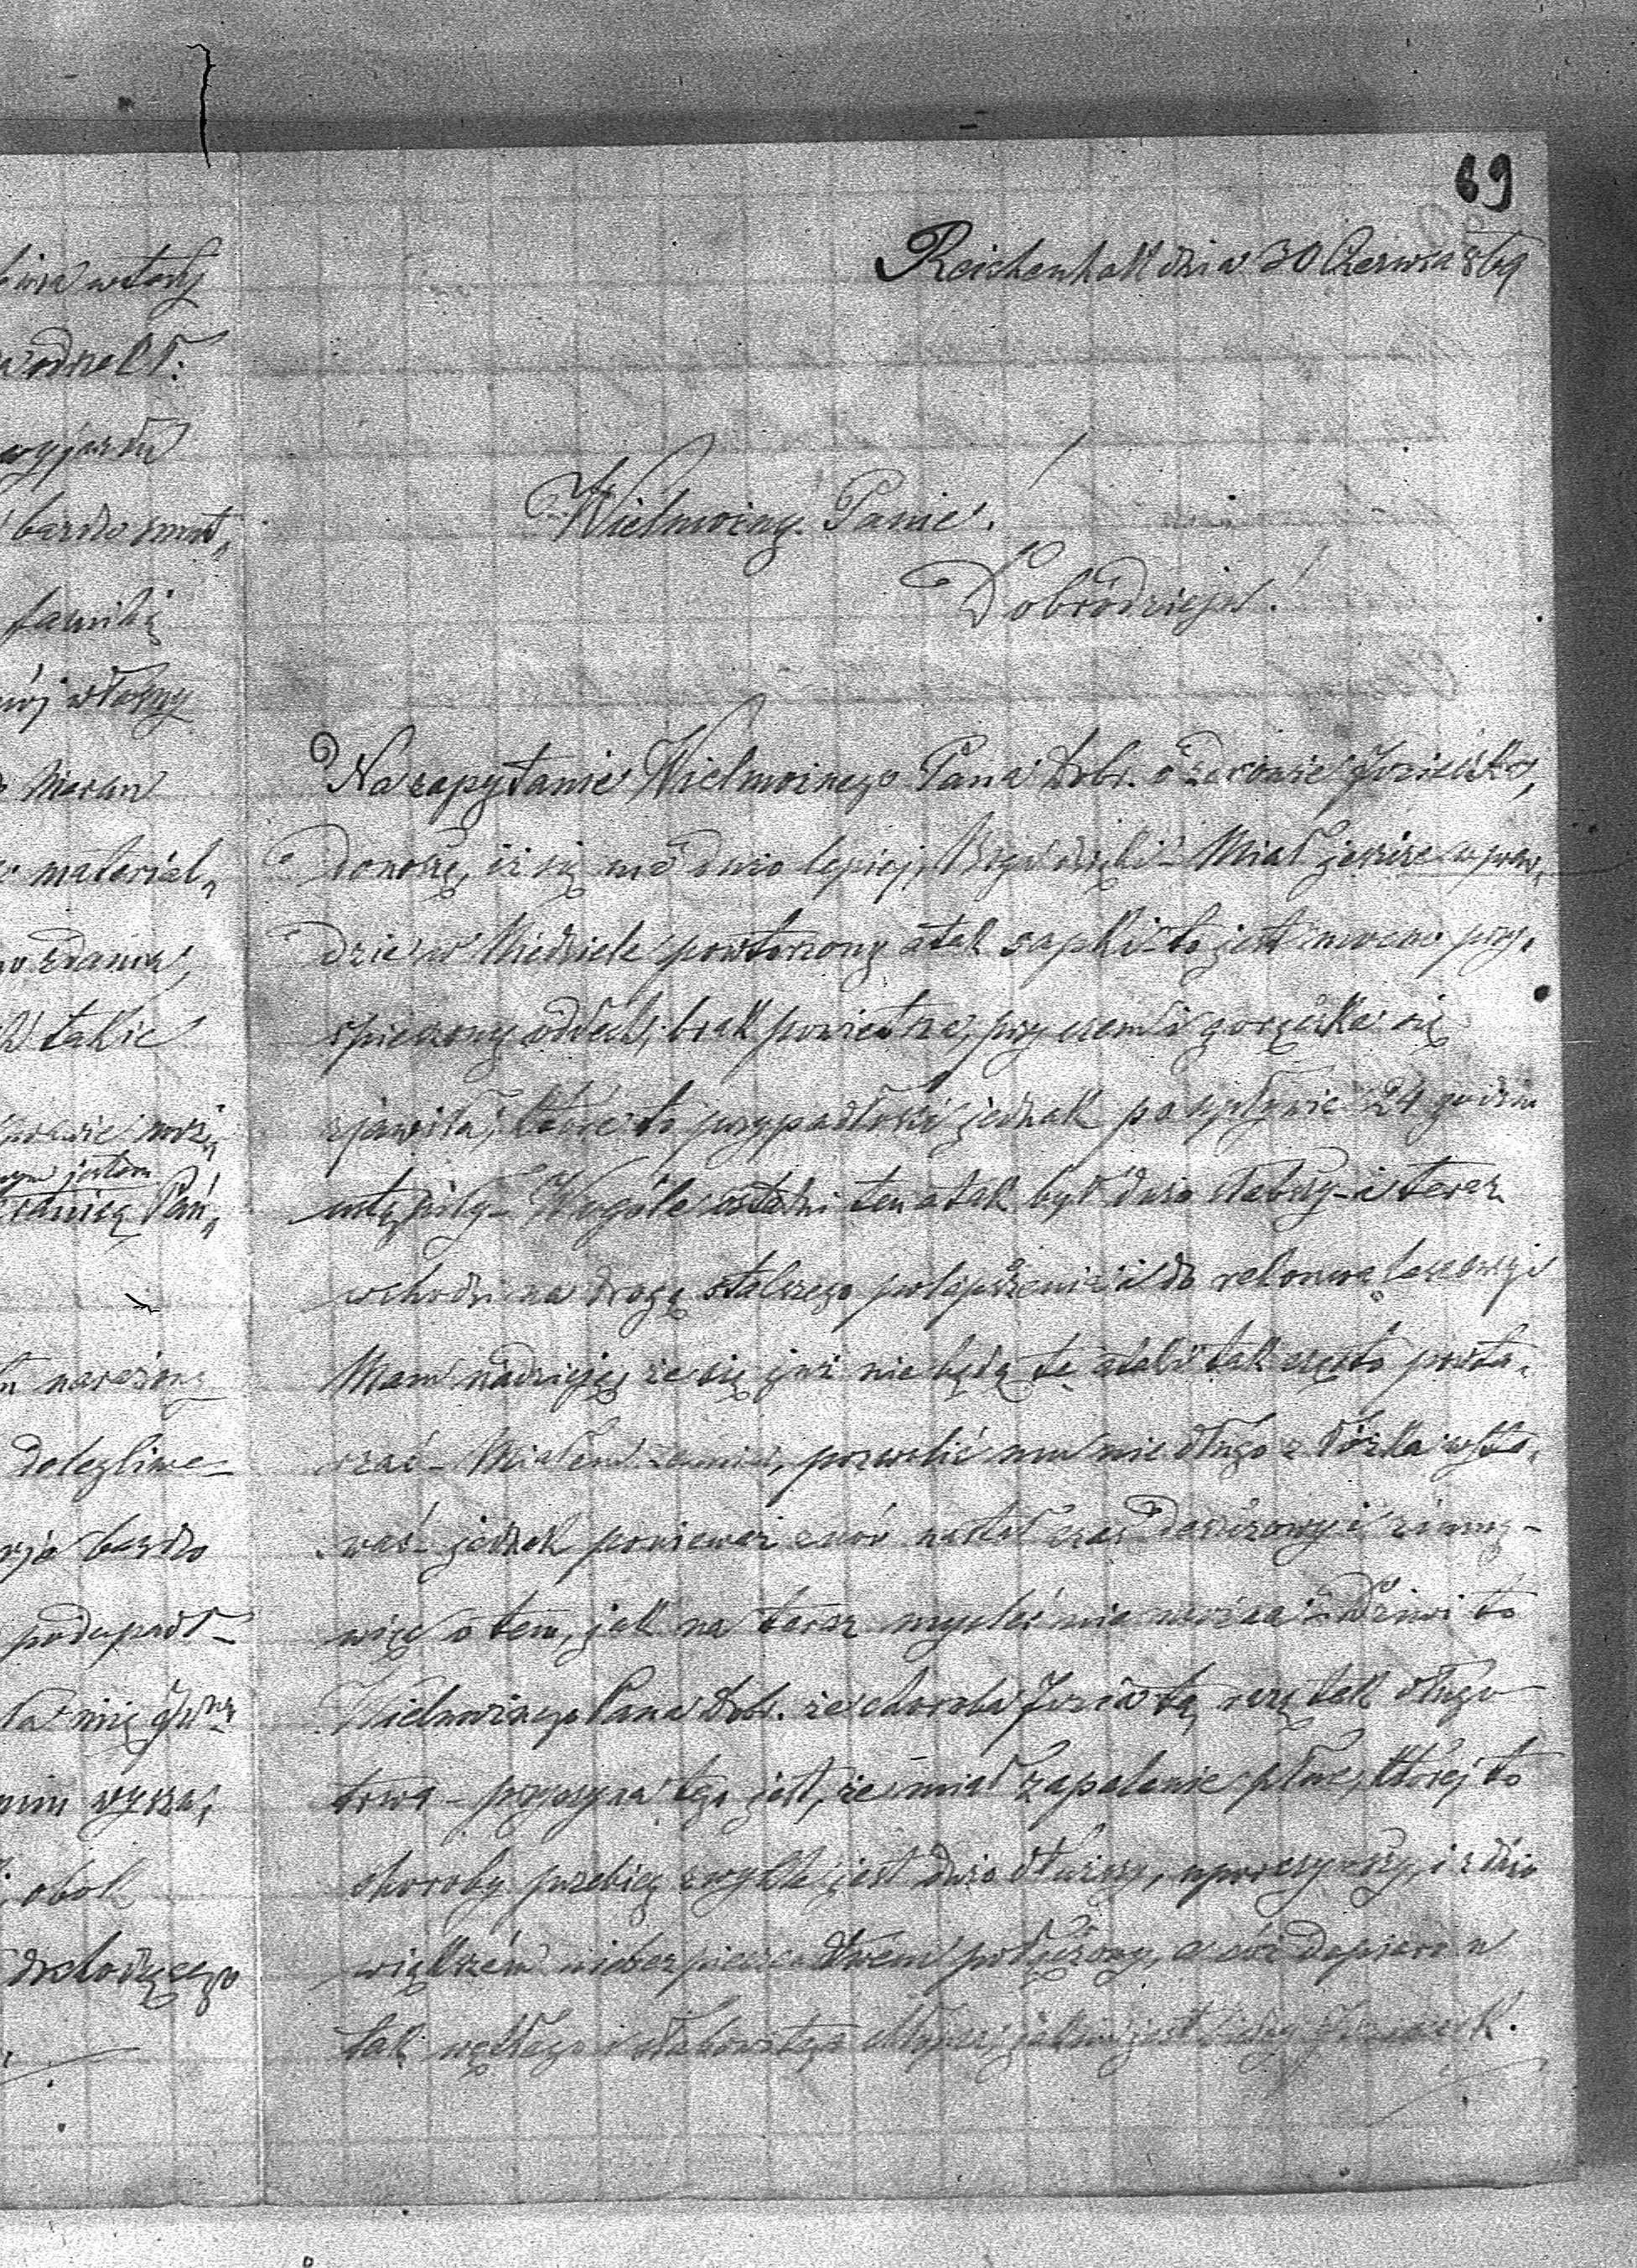 69
Reichenhall dnia 30 Czerwca 869
Wielmożny Panie!
Dobrodzieju!
Na zapytanie Wielmożnego Pana Dobr. o zdrowie Józieczka,
donoszę, iż się ma dużo lepiej, Bogu dzięki – Miał jeszcze wpraw„
dzie w Niedziele powtorzony atak sapki – to jest mocno przy„
spieszony oddech, brak powietrza, przy czem i gorączka się
zjawiła, które to przypadłości jednak po upływie 24 godzin
ustąpiły – Wogóle ostatni ten atak był dużo słabszy – i teraz
wchodzi na drogę stalszego polepszenia i do rekonwalescencyi
Mam nadzieję że się już nie będą te ataki tak często powta„
rzać – Miałem zamiar, pozwolić mu nie długo z łóżka wsta„
wać – jednak ponieważ znów nastał czas deszczowy i zimny –
więc o tem, jak na teraz myśleć nie można – Dziwi to
Wielmożnego Pana Dobr. że choroba Józia tą razą tak długo
trwa – przyczyna tego jest, że miał zapalenie płuc, której to
choroby przebieg zwykle jest dużo dłuższy, uporczywszy, i z dużo
większém niebezpieczeństwem połączony, a cóż dopiero u
tak wątłego i słabowitego chłopca, jakim jest Józieczek.
wtedy
wyjazdu
bardzo smut„
familią
własny
Meran
material„
zdania,
takie
jestem
narażoną
dolegliwe –
bardzo
podupadł –
obok
dochodzącego